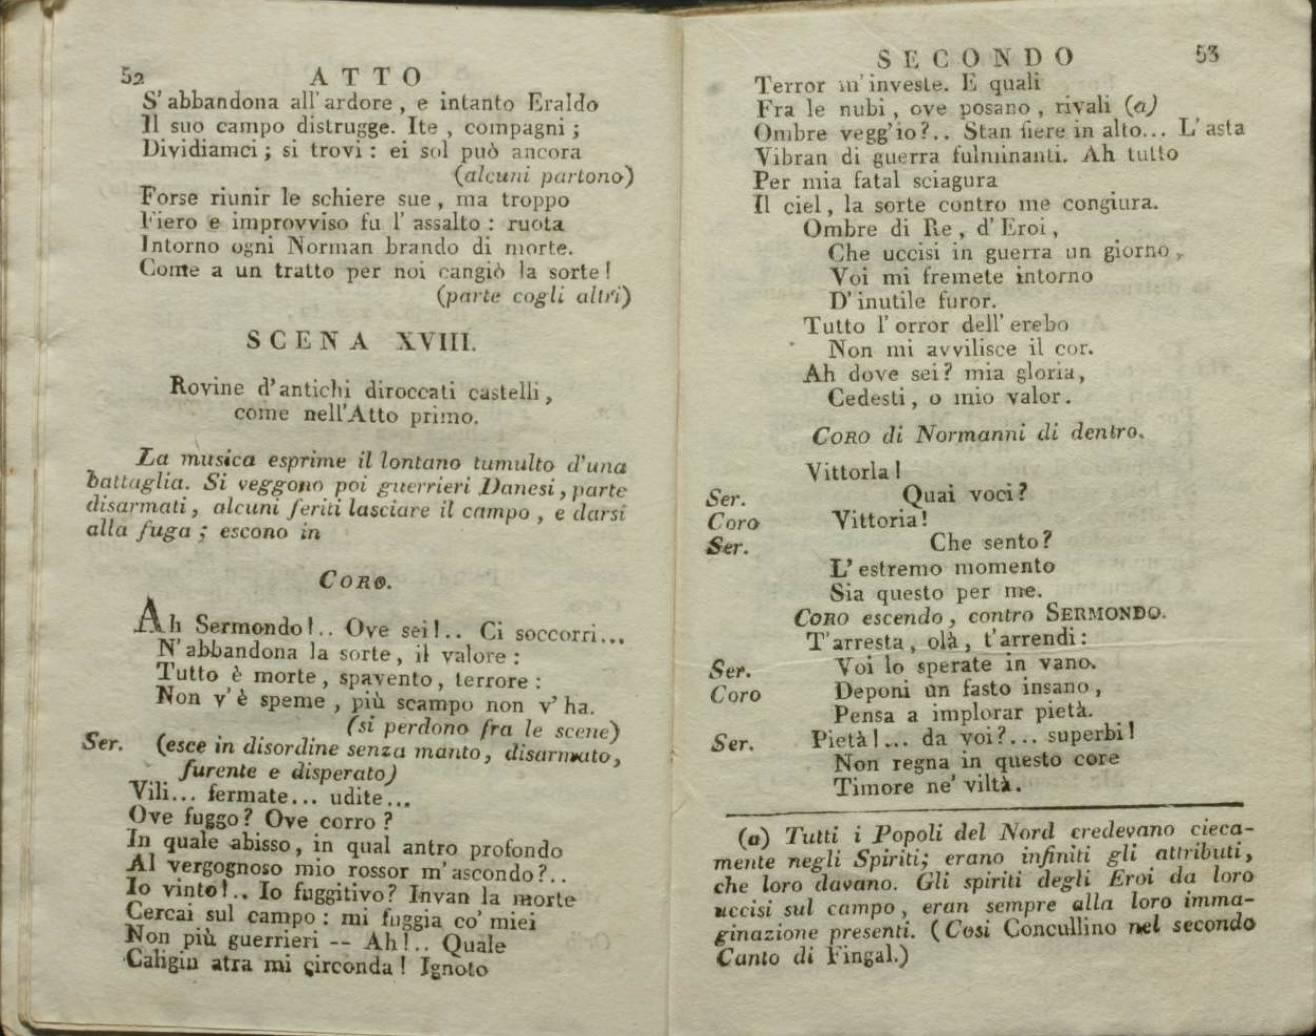 52 ATTO
S' abbandona all' ardore , e intanto Eraldo
Il suo campo distrugge. Ite , compagni ;
Dividiamci ; si trovi : ei sol può ancora
(alcuni partono)
Forse riunir le schiere sue , ma troppo
Fiero e improvviso fu l' assalto : ruota
Intorno ogni Norman brando di morte.
Come a un tratto per noi cangiò la sorte !
(parte cogli altri)
SCENA XVIII.
Rovine d'antichi diroccati castelli ,
come nell'Atto primo.
La musica esprime il lontano tumulto d'una
battaglia. Si veggono poi guerrieri Danesi , parte
disarmati , alcuni feriti lasciare il campo , e darsi
alla fuga ; escono in
CORO.
Ah Sermondo !.. Ove sei !.. Ci soccorri...
N' abbandona la sorte , il valore :
Tutto è morte , spavento , terrore :
Non v' è speme , più scampo non v' ha.
(si perdono fra le scene)
Ser. (esce in disordine senza manto, disarmato,
furente e disperato)
Vili... fermate... udite...
Ove fuggo? Ove corro ?
In quale abisso, in qual antro profondo
Al vergognoso mio rossor m' ascondo?..
Io vinto!.. Io fuggitivo? Invan la morte
Cercai sul campo : mi fuggia co' miei
Non più guerrieri -- Ah!.. Quale
Caligin atra mi circonda ! Ignoto
SECONDO 53
Terror m' investe. E quali
Fra le nubi , ove posano , rivali (a)
Ombre vegg'io ?.. Stan fiere in alto... L' asta
Vibran di guerra fulminanti. Ah tutto
Per mia fatal sciagura
Il ciel , la sorte contro me congiura.
Ombre di Re , d' Eroi ,
Che uccisi in guerra un giorno ,
Voi mi fremete intorno
D' inutile furor.
Tutto l' orror dell' erebo
Non mi avvilisce il cor.
Ah dove sei ? mia gloria,
Cedesti , o mio valor.
CORO di Normanni di dentro.
Vittoria !
Ser. Quai voci ?
Coro Vittoria !
Ser. Che sento ?
L' estremo momento
Sia questo per me.
CORO escendo, contro SERMONDO.
T' arresta , olà , t'arrendi :
Ser. Voi lo sperate in vano.
Coro Deponi un fasto insano ,
Pensa a implorar pietà.
Ser. Pietà !... da voi ?... superbi !
Non regna in questo core
Timore ne' viltà.
(a) Tutti i Popoli del Nord credevano cieca-
mente negli Spiriti; erano infiniti gli attributi,
che loro davano. Gli spiriti degli Eroi da loro
uccisi sul campo , eran sempre alla loro imma-
ginazione presenti. (Cosi Concullino nel secondo
Canto di Fingal.)